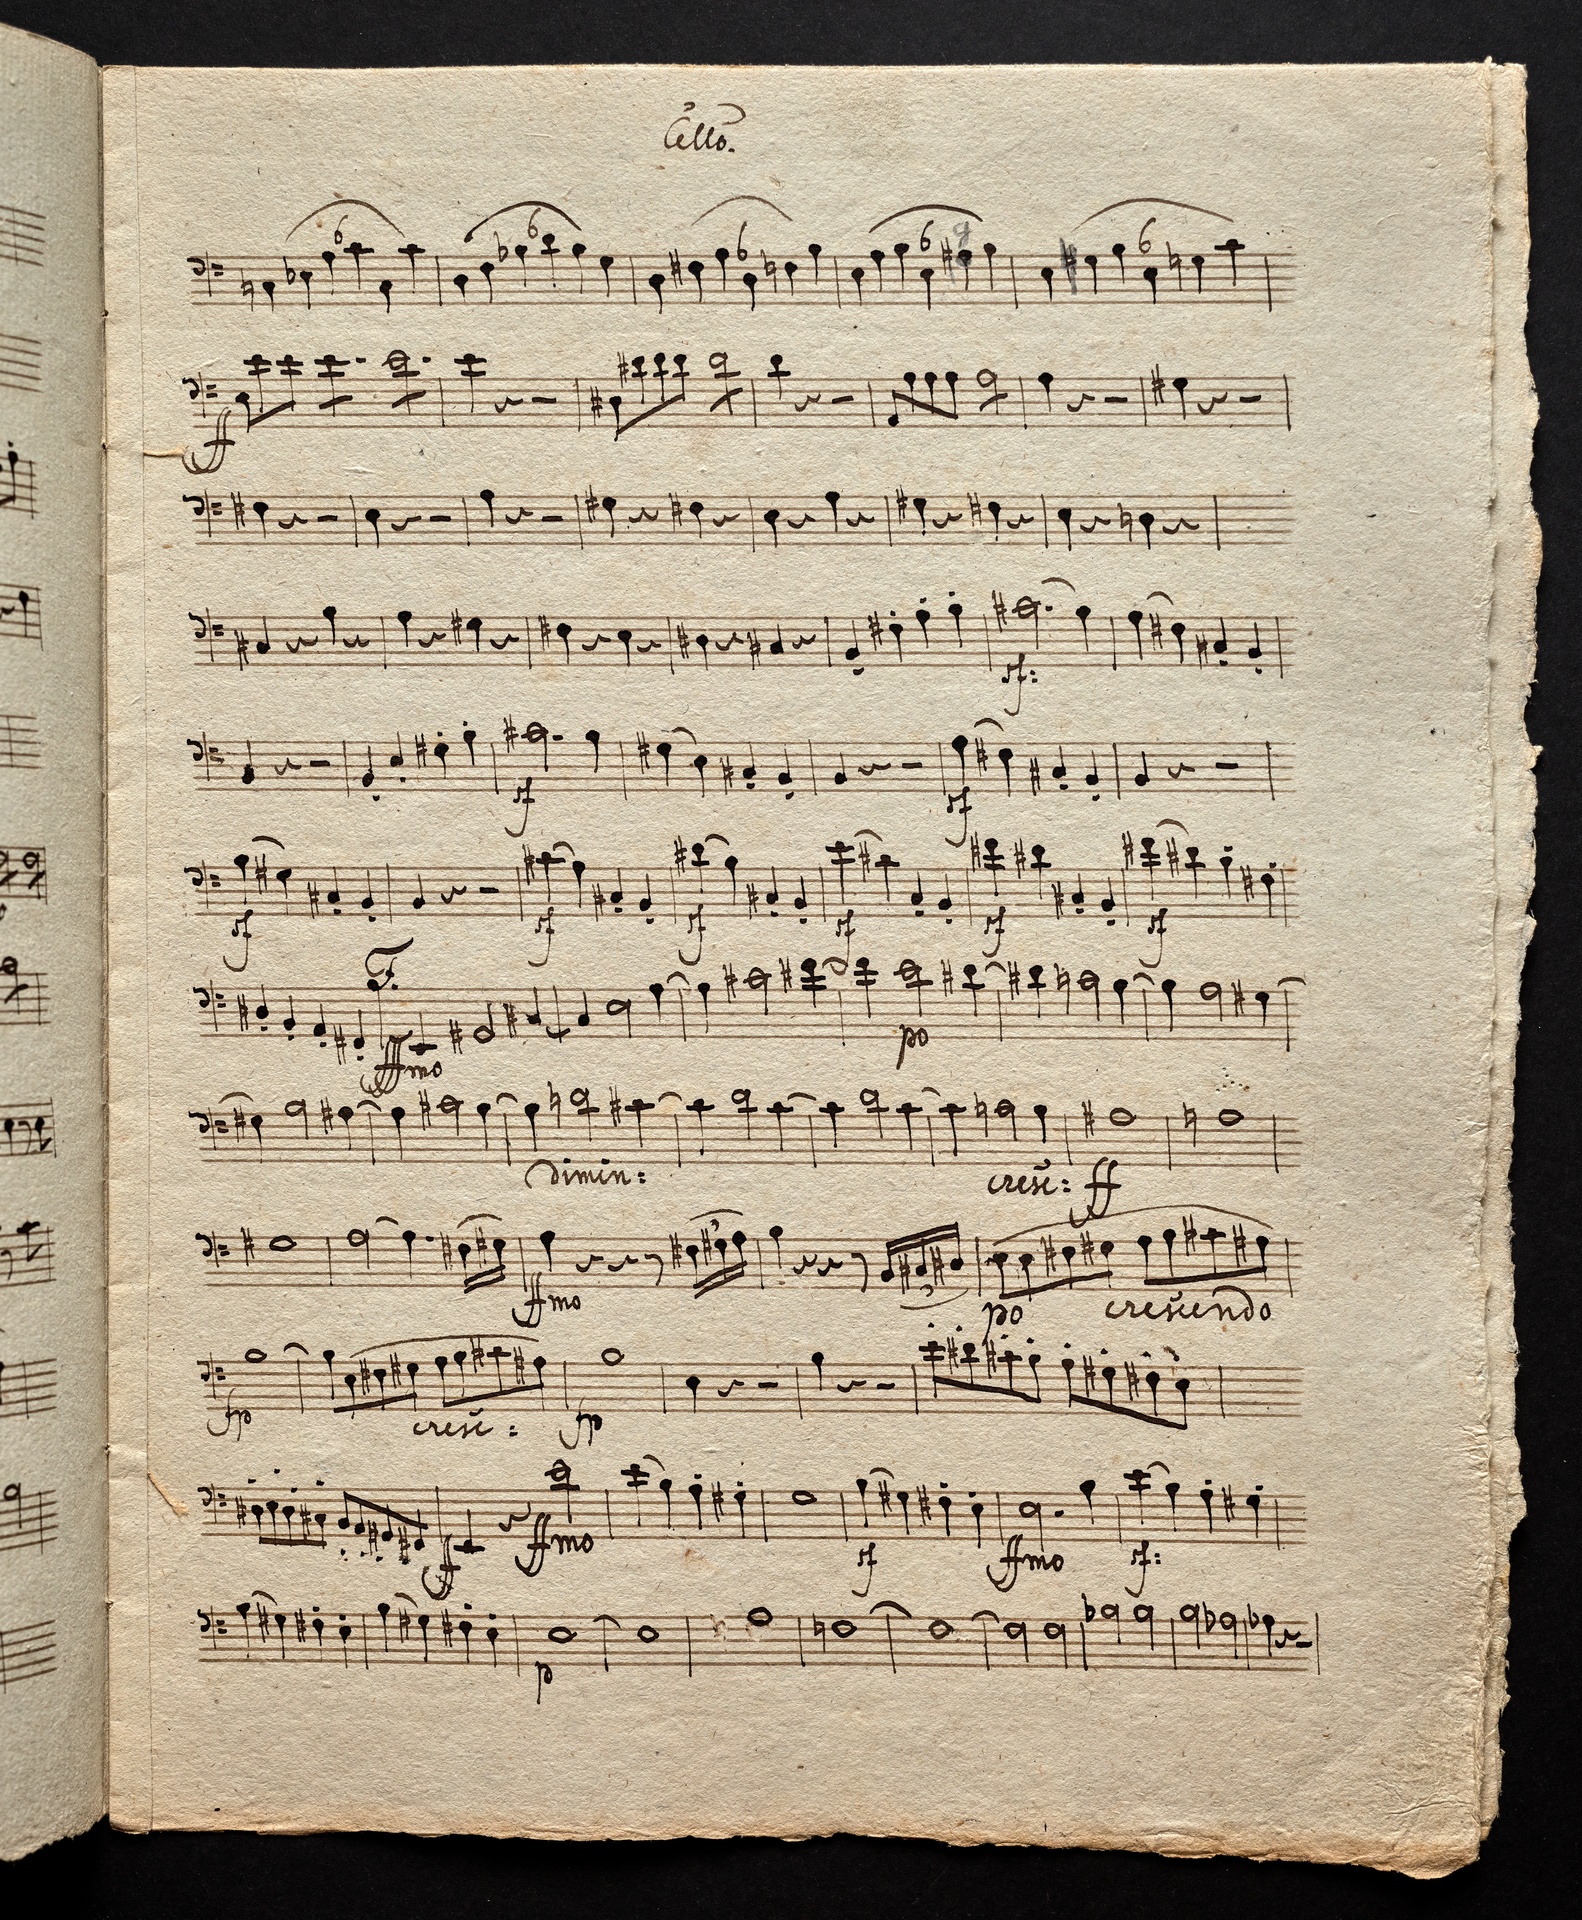 Cello.
6 6 6 6 6
ff
sf:
sf sf
sf sf sf sf sf sf
F.
ffmo po
dimin: cresc: ff
3
ffmo 3 po crescendo
fp cresc: fp
ff ffmo sf ffmo sf:
p